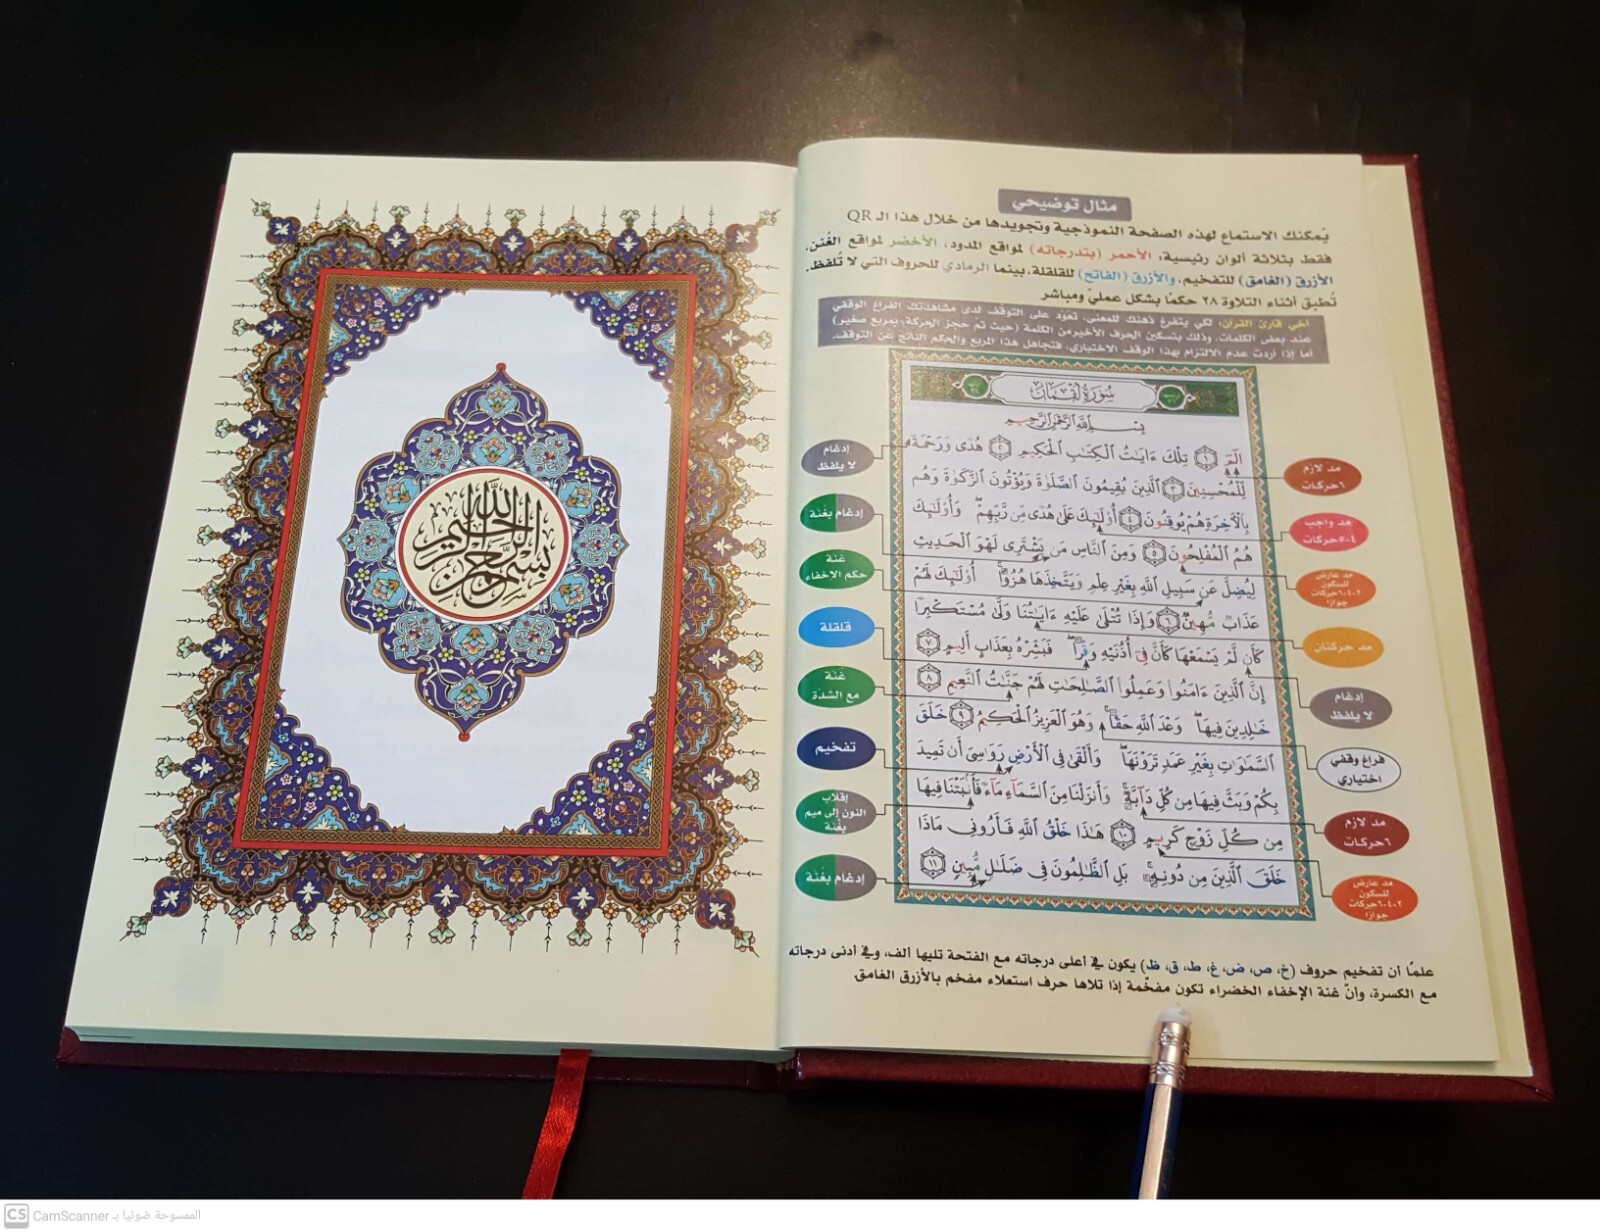 بسم الله الرحمن الرحيم
مثال توضيحي
يُمكنك الاستماع لهذه الصفحة النموذجية وتجويدها من خلال هذا الـ QR
فقط بثلاثة ألوان رئيسية، الأحمر (بتدرجاته) لمواقع المدود، الأخضر لمواقع الغُنن،
الأزرق (الغامق) للتفخيم، والأزرق (الفاتح) للقلقلة، بينما الرمادي للحروف التي لا تُلفظ.
تُطبق أثناء التلاوة ٢٨ حكمًا بشكل عمليّ ومباشر
أخي قارئ القرآن: لكي يتفرغ ذهنك للمعنى، تعوّد على التوقف لدى مشاهدتك الفراغ الوقفي
عند بعض الكلمات، وذلك بتسكين الحرف الأخير من الكلمة (حيث تم حجز الحركة، بمربع صغير)
أما إذا أردت عدم الالتزام بهذا الوقف الاختياري، فتجاهل هذا المربع والحكم الناتج عن التوقف.
سُورَةُ لُقْمَان
بِسْمِ ٱللَّهِ ٱلرَّحْمَٰنِ ٱلرَّحِيمِ
الٓمٓ ١ تِلْكَ ءَايَٰتُ ٱلْكِتَٰبِ ٱلْحَكِيمِ ٢ هُدًى وَرَحْمَةً
لِّلْمُحْسِنِينَ ٣ ٱلَّذِينَ يُقِيمُونَ ٱلصَّلَوٰةَ وَيُؤْتُونَ ٱلزَّكَوٰةَ وَهُم
بِٱلْأَخِرَةِ هُمْ يُوقِنُونَ ٤ أُوْلَٰٓئِكَ عَلَىٰ هُدًى مِّن رَّبِّهِمْ وَأُوْلَٰٓئِكَ
هُمُ ٱلْمُفْلِحُونَ ٥ وَمِنَ ٱلنَّاسِ مَن يَشْتَرِى لَهْوَ ٱلْحَدِيثِ
لِيُضِلَّ عَن سَبِيلِ ٱللَّهِ بِغَيْرِ عِلْمٍ وَيَتَّخِذَهَا هُزُوًا أُوْلَٰٓئِكَ لَهُمْ
عَذَابٌ مُّهِينٌ ٦ وَإِذَا تُتْلَىٰ عَلَيْهِ ءَايَٰتُنَا وَلَّىٰ مُسْتَكْبِرًا
كَأَن لَّمْ يَسْمَعْهَا كَأَنَّ فِىٓ أُذُنَيْهِ وَقْرًا فَبَشِّرْهُ بِعَذَابٍ أَلِيمٍ ٧
إِنَّ ٱلَّذِينَ ءَامَنُوا۟ وَعَمِلُوا۟ ٱلصَّٰلِحَٰتِ لَهُمْ جَنَّٰتُ ٱلنَّعِيمِ ٨
خَٰلِدِينَ فِيهَا وَعْدَ ٱللَّهِ حَقًّا وَهُوَ ٱلْعَزِيزُ ٱلْحَكِيمُ ٩ خَلَقَ
ٱلسَّمَٰوَٰتِ بِغَيْرِ عَمَدٍ تَرَوْنَهَا وَأَلْقَىٰ فِى ٱلْأَرْضِ رَوَٰسِىَ أَن تَمِيدَ
بِكُمْ وَبَثَّ فِيهَا مِن كُلِّ دَآبَّةٍ وَأَنزَلْنَا مِنَ ٱلسَّمَآءِ مَآءً فَأَنۢبَتْنَا فِيهَا
مِن كُلِّ زَوْجٍ كَرِيمٍ ١٠ هَٰذَا خَلْقُ ٱللَّهِ فَأَرُونِى مَاذَا
خَلَقَ ٱلَّذِينَ مِن دُونِهِ بَلِ ٱلظَّٰلِمُونَ فِى ضَلَٰلٍ مُّبِينٍ ١١
مد لازم
٦ حركات
مد واجب
٤-٥ حركات
مد عارض
للسكون
٢-٤-٦ حركات
جوازًا
مد حركتان
إدغام
لا يلفظ
فراغ وقفي
اختياري
مد لازم
٦ حركات
مد عارض
للسكون
٢-٤-٦ حركات
جوازًا
إدغام
لا يلفظ
إدغام بغنة
غنة
حكم الاخفاء
قلقلة
غنة
مع الشدة
تفخيم
إقلاب
النون إلى ميم
بغنة
إدغام بغنة
علمًا أن تفخيم حروف (خ، ص، ض، غ، ط، ق، ظ) يكون في أعلى درجاته مع الفتحة تليها ألف، وفي أدنى درجاته
مع الكسرة، وأنّ غنة الإخفاء الخضراء تكون مفخّمة إذا تلاها حرف استعلاء مفخم بالأزرق الغامق
CS CamScanner الممسوحة ضوئيا بـ